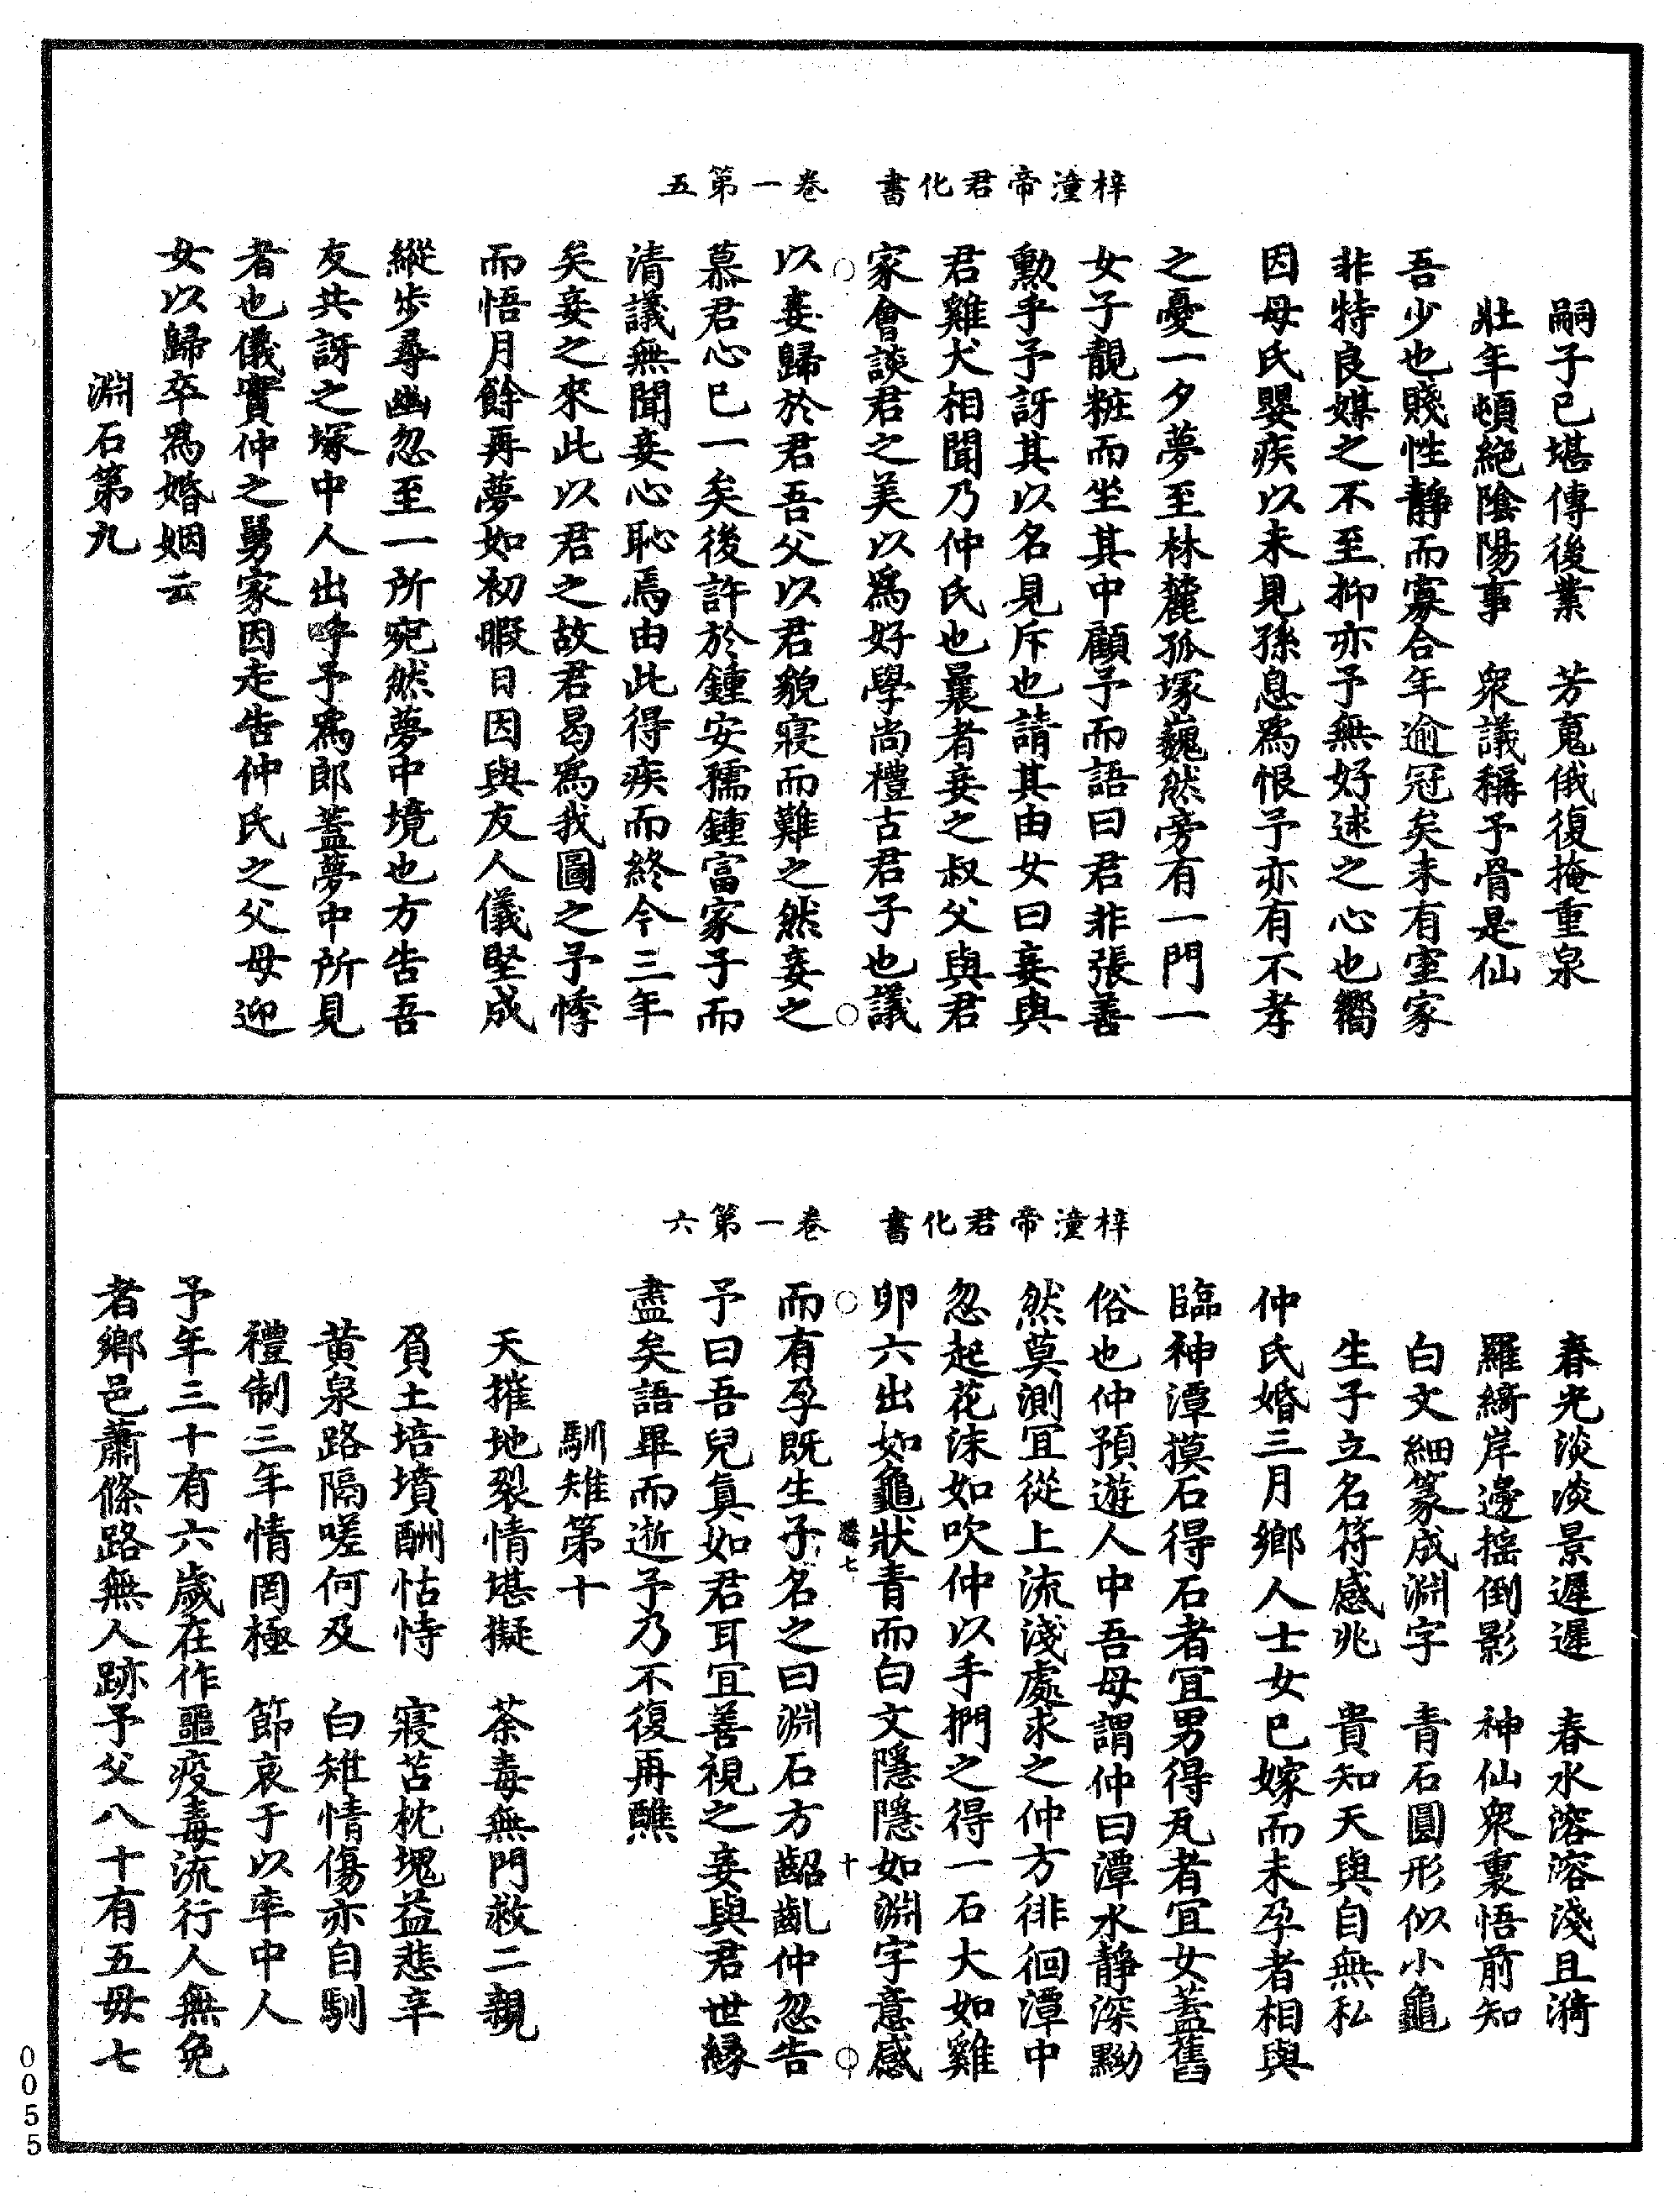 梓潼帝君化書　卷一第五
嗣子已堪傳後業　芳䰟俄復掩重泉
壯年頓絶隂陽事　衆議稱予骨是仙
吾少也賤性靜而寡合年逾冠矣未有室家
非特良媒之不至抑亦予無好逑之心也嚮
因母氏嬰疾以未見孫息爲恨予亦有不孝
之憂一夕夢至林麓孤塚巍然旁有一門一
女子靚粧而坐其中顧予而語曰君非張善
勳乎予訝其以名見斥也請其由女曰妾與
君雞犬相聞乃仲氏也曩者妾之叔父與君
家會談君之美以爲好學尚禮古君子也議
以妾歸於君吾父以君貌寢而難之然妾之
慕君心已一矣後許於鍾安孺鍾富家子而
清議無聞妾心恥焉由此得疾而終今三年
矣妾之來此以君之故君曷爲我圖之予悸
而悟月餘再夢如初暇日因與友人儀堅成
縱步尋幽忽至一所宛然夢中境也方告吾
友共訝之塚中人出呼予爲郎蓋夢中所見
者也儀實仲之舅家因走告仲氏之父母迎
女以歸卒爲婚姻云
淵石第九
梓潼帝君化書　卷一第六
春光淡淡景遲遲　春水溶溶淺且漪
羅綺岸邊搖倒影　神仙衆裏悟前知
白文細篆成淵字　青石圓形似小龜
生子立名符感兆　貴知天與自無私
仲氏婚三月鄉人士女已嫁而未孕者相與
臨神潭摸石得石者宜男得瓦者宜女蓋舊
俗也仲預遊人中吾母謂仲曰潭水靜深黝
然莫測宜從上流淺處求之仲方徘徊潭中
忽起花沫如吹仲以手捫之得一石大如雞
卵六出如龜狀青而白文隱隱如淵字意感
七　十
而有孕既生子名之曰淵石方齠齓仲忽告
予曰吾兒真如君耳宜善視之妾與君世縁
盡矣語畢而逝予乃不復再醮
馴雉第十
天摧地裂情堪擬　荼毒無門救二親
負土培墳酬怙恃　寢苫枕塊益悲辛
黄泉路隔嗟何及　白雉情傷亦自馴
禮制三年情罔極　節哀于以率中人
予年三十有六歲在作噩疫毒流行人無免
者鄉邑蕭條路無人跡予父八十有五母七
0055